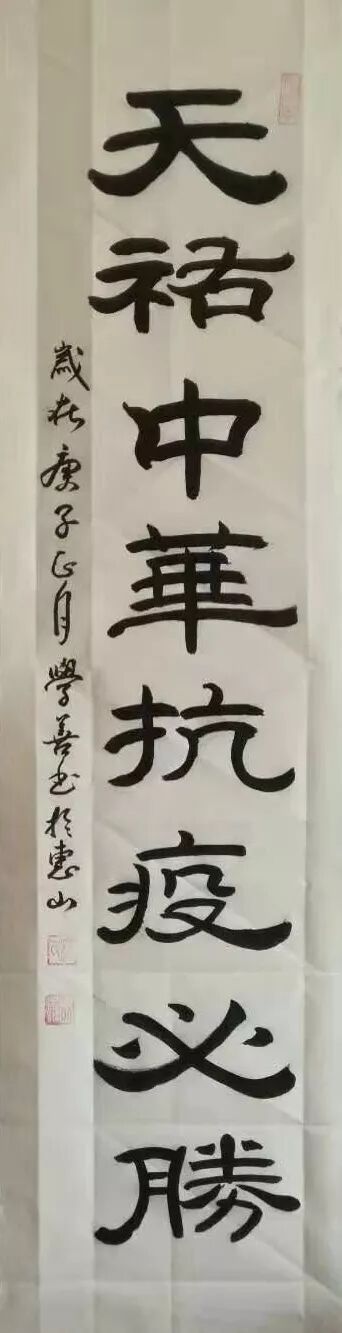 天祐中華抗疫必勝
歲在庚子正月學善书於惠山